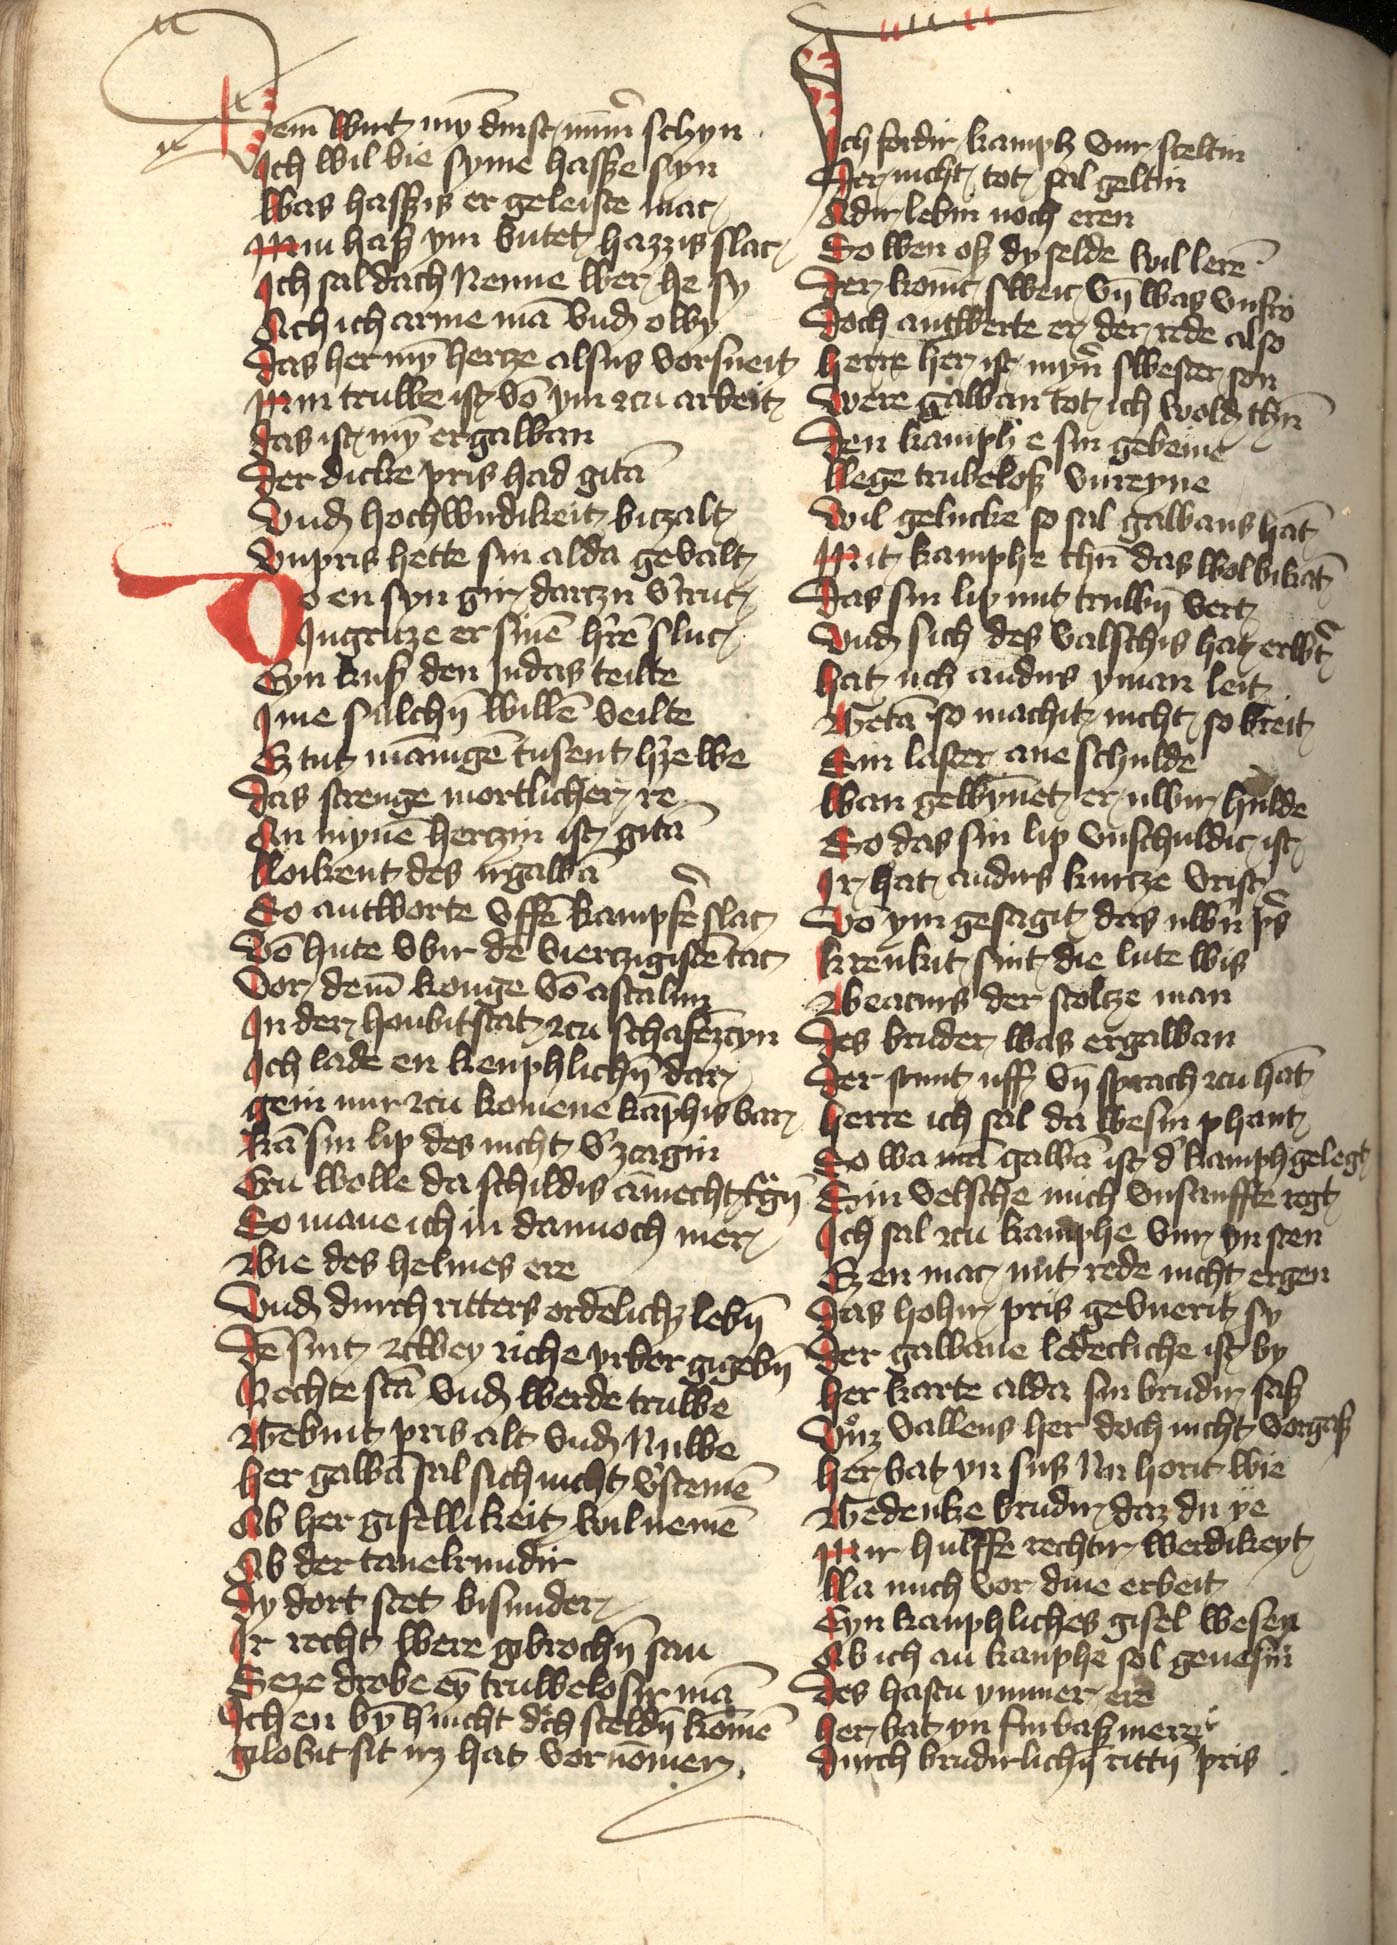 Dem wirt mӯ dinst nim̄er schyn
Ich wil bie syme hassze syn
Was hasszis er geleiste mac
Min hasz ym butet hazzis slac
Ich sal dach Nenne wer he sy
Ach ich arme mā vnd owy
das her mȳ hertze alsus vorsneit
Min truwe ist vō ym zcu arbeit
das ist mȳ er gawan
Der dicke pris had gitā
Vnd hochwirdikeit biczalt
Vnpris hette sin alda gewalt
Do en syn gir darczu v'truc
In gruze er sinē h'rē sluc
Eyn kus den Judas teilte
Ime sulchn̄ willē veilte
Ez tut mānigē tusent h'ze we
das strenge mortlicher re
An mynē herczin ist gitā
Loikent des ir gawā
So antworte vffē kampfe slac
Vō hute vbir dē vierzigistē tac
Vor dem̄ konge vō astalun
In der houbitstat zcu schafēzcyn
Ich lade en kenphlichn̄ dar
gein mir zcu komene kāphis bar
kā sin lip des nicht v'zcagin
Eru wolle da schildis āmecht t͛gn̄
So mane ich in dannoch mer
Wie des helmes ere
Vnd durch ritters ordēlichz lebn̄
Dē sint zcwey riche vrbor gigebn̄
Rechte scā vnd werde truwe
Gēbint pris alt vnd Nuwe
her gawā sal sich nicht v'scemē
Ab her gisellikeit wil nemē
Ab der tauelrundir
Dy dort stet bisunder
Ir recht were gibrochn̄ san
Seze drobe eȳ truwelosir mā
Ich en bȳ h' nicht d'ch sceldn̄ komē
globit sit irz hat vornomen
Ich fordir kamph vur sceltin
Der nicht tot sal geltin
Adir lebin noch eren
So wen osz dy selde wil lerē
Der konic sweic vn̄ was vnfro
Doch antwerte er der rede also
herre her ist myn' swester son
Were gawan tot ich wold thūn
Den kamph e sin gebeine
Lege truweloss vnreyne
Wil gelucke so sal gawans hāt
Mit kamphe thūn das wol bikāt
Das sin lip mit truwn̄ vert
Vnd sich des valschis hat erw't
hat uch andirs yman leit
Getā so machit nicht so breit
Sin laster ane schulde
Wan gewȳnet er uwir hulde
So das sin lip vnschuldic ist
Ir hat andirs kurcze vrist
Vō ym gesagit das uwīr p's
krenkit sint die lute wis
Beacurs der stoltze man
Des bruder was er gawan
Der spint uff vn̄ sprach zcu hāt
herre ich sal da wesin phant
So wa mā gawā ist d' kamph gelegt
Sin velsche mich vnsanffte regt
Ich sal zcu kamphe vur yn sten
Ez en mac mit rede nicht ergen
Das hohir pris geuuerit sy
Der gawane ledecliche ist by
her karte alda sin brudir sasz
Vuz vallens her doch nicht vorgasz
her bat yn sus Nu horit wie
Gedenke brudir daz du ye
Mir hulffe rechtir werdikeyt
La mich vor dine erbeit
Eyn kanphliches gisel wesen
Ab ich an kanphe sol genesin
Des hastu ymmer ere
her bat yn furbasz mere
Durch brudirlichn̄ rittn̄ pris